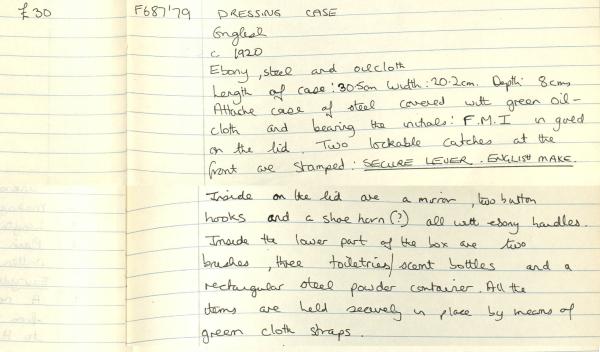 £30 F687'79 DRESSING CASE
English
c. 1920
Ebony, steel and oilcloth
Length of case: 30.5cm Width: 20.2cm. Depth: 8cms
Attache case of steel covered with green oil-
cloth and bearing the initials: F.M.I in gold
on the lid. Two lockable catches at the
front are stamped: SECURE LEVER. ENGLISH MAKE.
Inside on the lid are a mirror, two button
hooks and a shoe horn(?) all with ebony handles.
Inside the lower part of the box are two
brushes, three toiletries/scent bottles and a
rectangular steel powder container. All the
items are held securely in place by means of
green cloth straps.